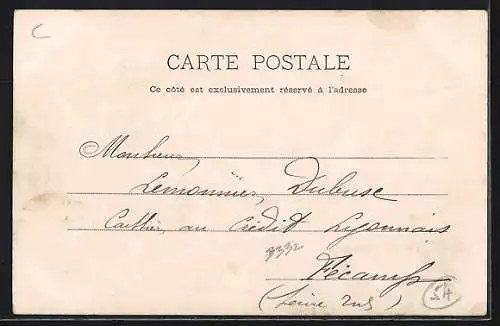 C
CARTE POSTALE
Ce côté est exclusivement réservé à l'adresse
Monsieur
Lemonnier, Dubuse
Caissier, au Crédit Lyonnais
Fécamp
(Seine Inf)